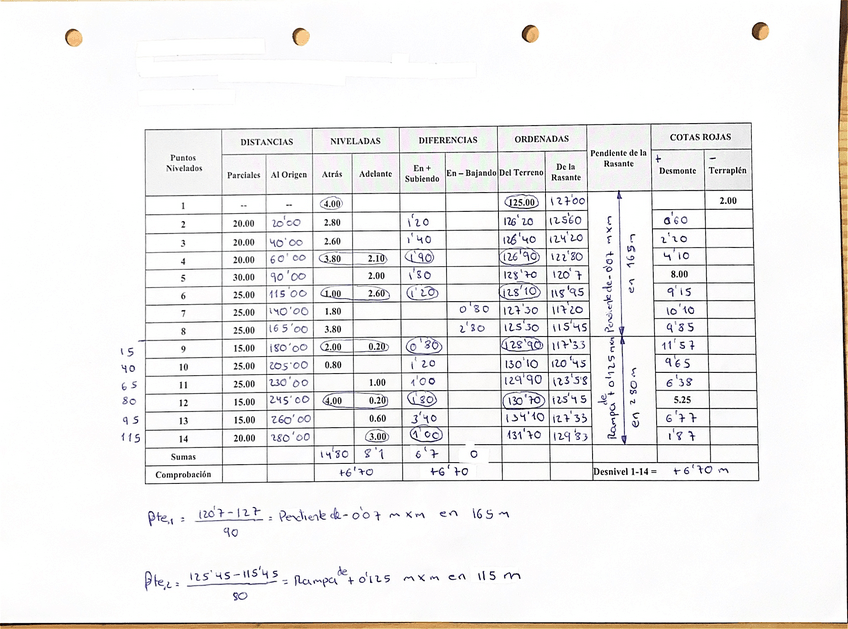 Puntos Nivelados | DISTANCIAS | NIVELADAS | DIFERENCIAS | ORDENADAS | Pendiente de la Rasante | COTAS ROJAS
Parciales | Al Origen | Atrás | Adelante | En + Subiendo | En – Bajando | Del Terreno | De la Rasante | + Desmonte | – Terraplén
1 | -- | -- | 4.00 | 125.00 | 127'00 | 2.00
2 | 20.00 | 20'00 | 2.80 | 1'20 | 126'20 | 125'60 | 0'60
3 | 20.00 | 40'00 | 2.60 | 1'40 | 126'40 | 124'20 | 2'20
4 | 20.00 | 60'00 | 3.80 | 2.10 | 1'90 | 126'90 | 122'80 | 4'10
5 | 30.00 | 90'00 | 2.00 | 1'80 | 128'70 | 120'7 | 8.00
6 | 25.00 | 115'00 | 1.00 | 2.60 | 1'20 | 128'10 | 118'95 | 9'15
7 | 25.00 | 140'00 | 1.80 | 0'80 | 127'30 | 117'20 | 10'10
8 | 25.00 | 165'00 | 3.80 | 2'80 | 125'30 | 115'45 | 9'85
15 | 9 | 15.00 | 180'00 | 2.00 | 0.20 | 0'80 | 128'90 | 117'33 | 11'57
40 | 10 | 25.00 | 205'00 | 0.80 | 1'20 | 130'10 | 120'45 | 9'65
65 | 11 | 25.00 | 230'00 | 1.00 | 1'00 | 129'90 | 123'58 | 6'38
80 | 12 | 15.00 | 245'00 | 4.00 | 0.20 | 1'80 | 130'70 | 125'45 | 5.25
95 | 13 | 15.00 | 260'00 | 0.60 | 3'40 | 134'10 | 127'33 | 6'77
115 | 14 | 20.00 | 280'00 | 3.00 | 1'00 | 131'70 | 129'83 | 1'87
Pendiente de -0'07 m x m
en 165 m
Rampa de +0'125 mxm
en 280 m
Sumas | 14'80 | 8'1 | 6'7 | 0
Comprobación | +6'70 | +6'70 | Desnivel 1-14 = +6'70 m
Pte,1 = (120'7-127)/90 = Pendiente de -0'07 m x m en 165 m
Pte,2 = (125'45-115'45)/80 = Rampa de +0'125 m x m en 115 m